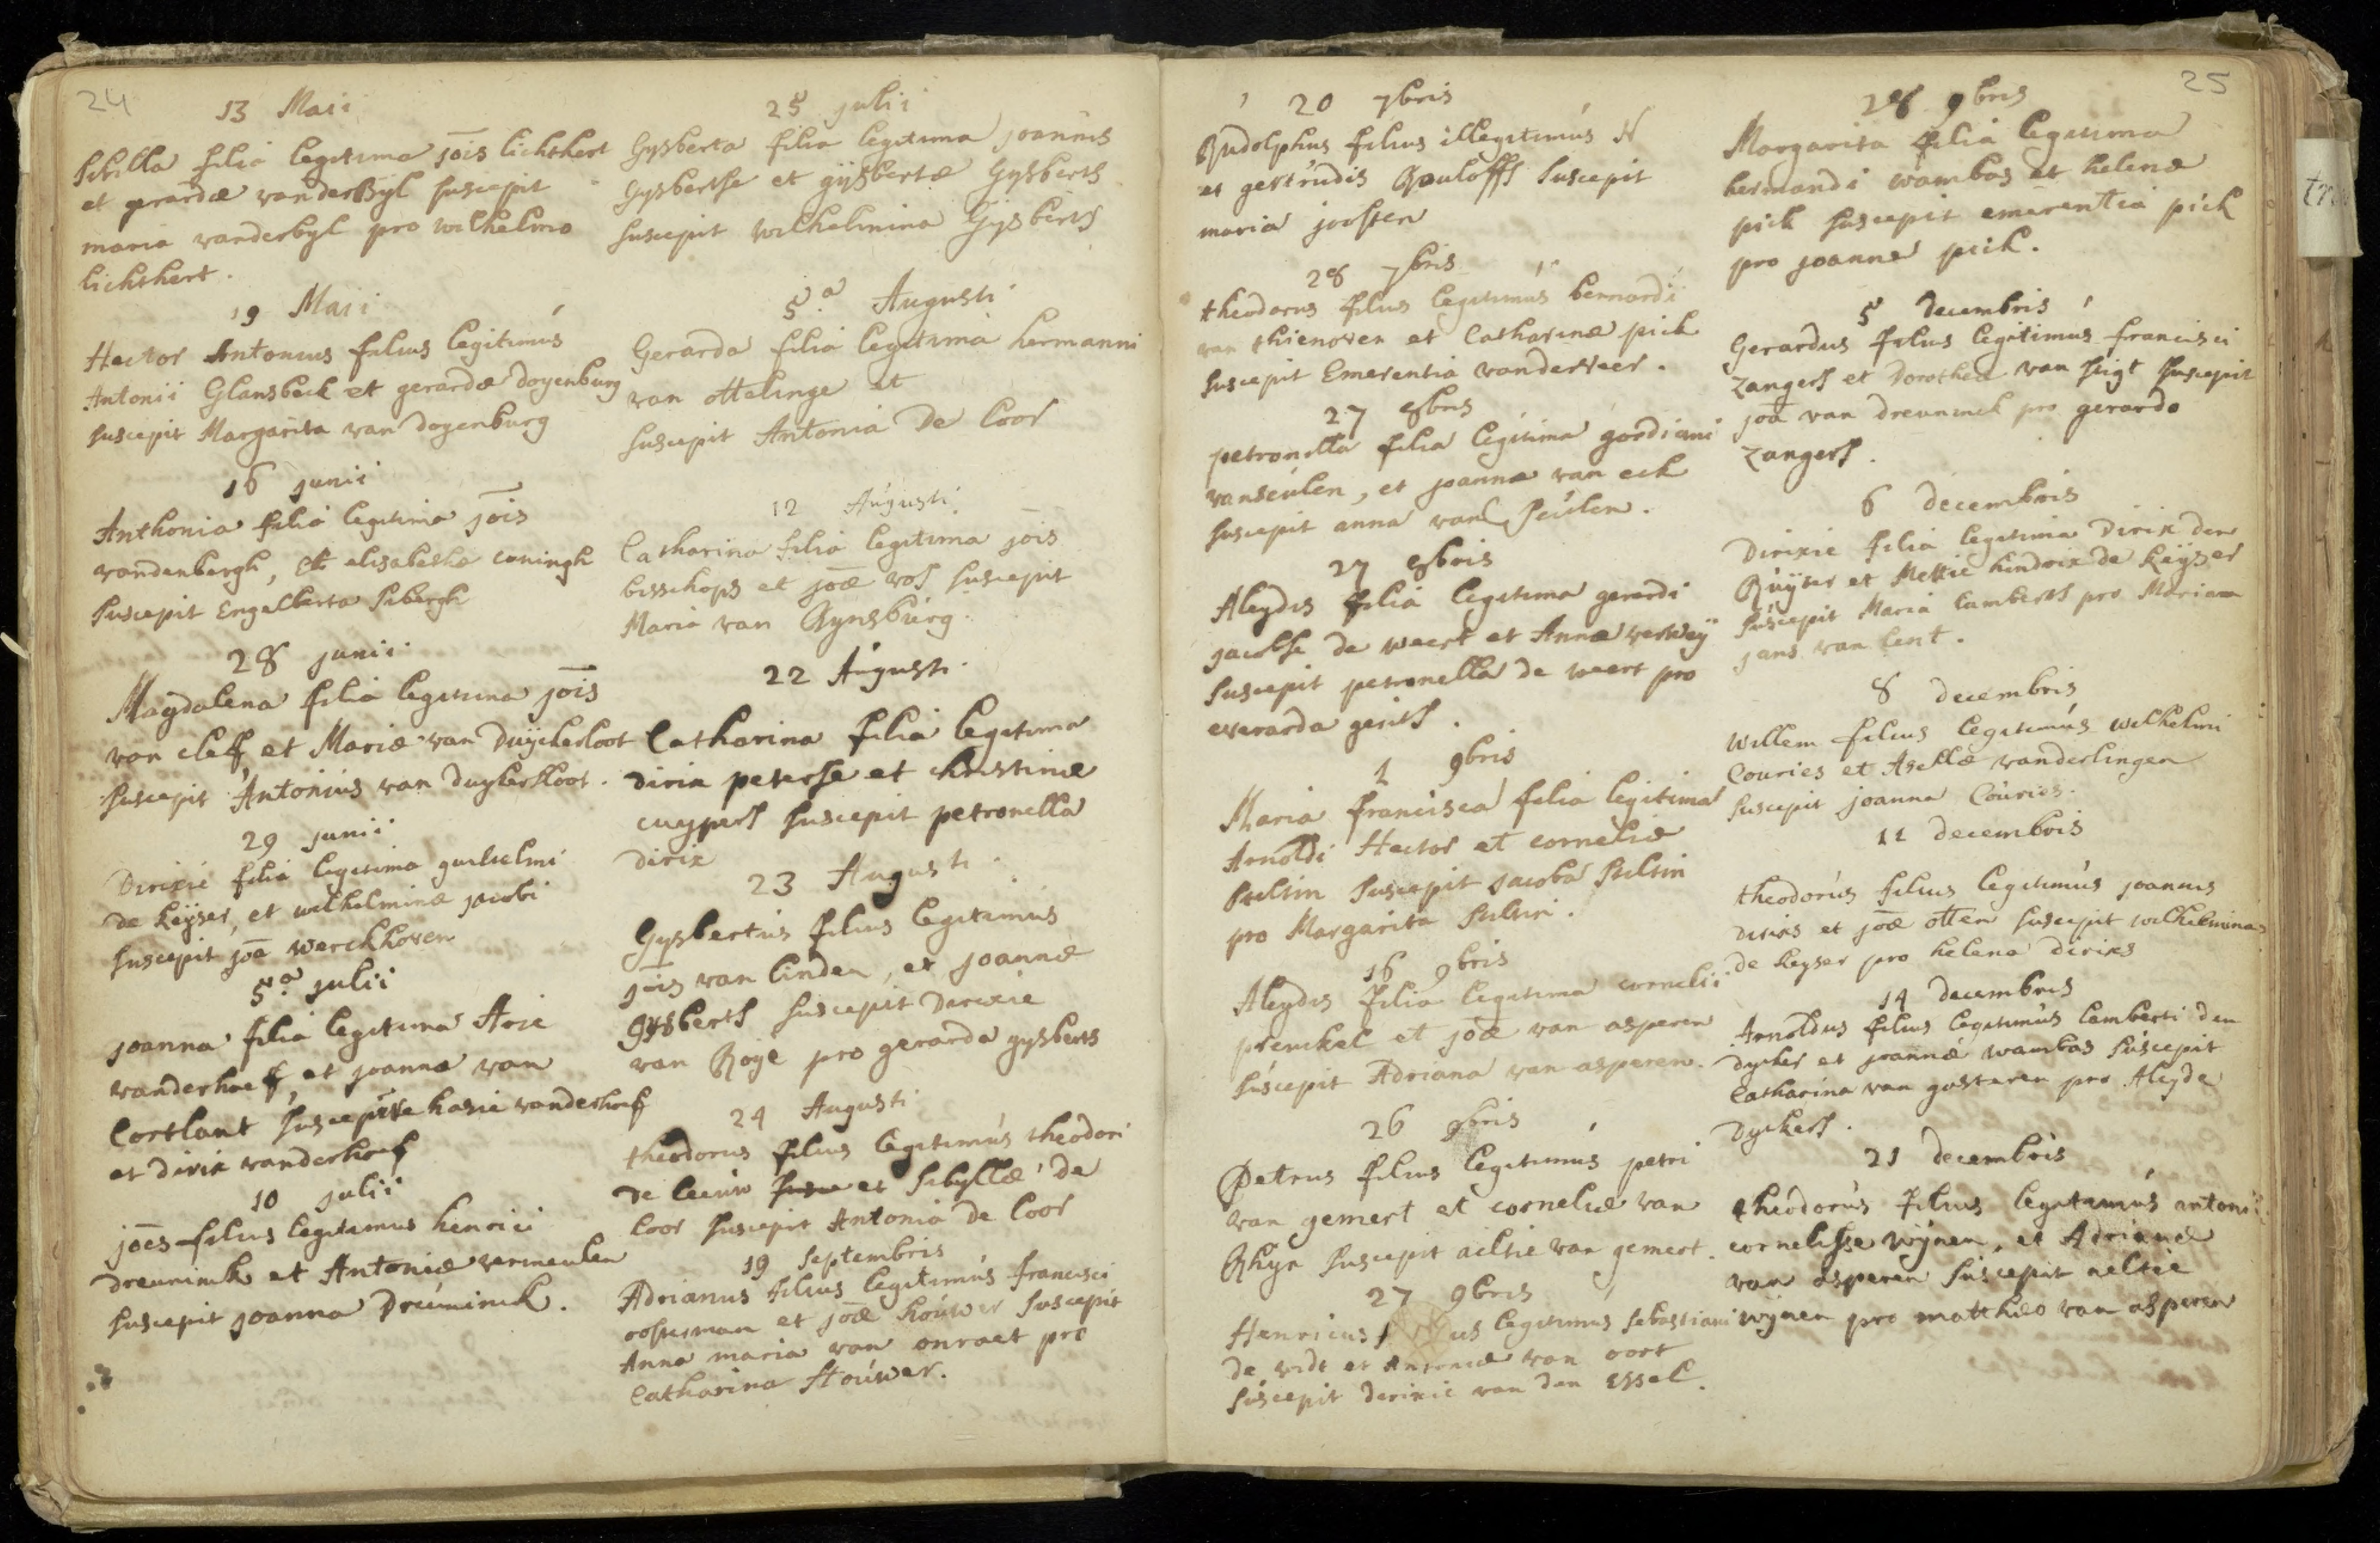 24
13 Maii
Sibilla filia legitima jōis lichthert
et gerardæ vanderbyl suscepit
maria vanderbyl pro wilhelma
lichthert.
19 Maii
Hector Antonius filius legitimús
Antonii Glansbeek et gerardæ doyenburg
suscepit Margarita van doyenburg
16 junii
Anthonia filia legitima jōis
vandenbergh, et elisabetha coningh
suscepit Engelberta Sibergh
28 junii
Magdalena filia legitima jōis
van cleff et Mariæ van Duÿckerloot
suscepit Antonius van duykersloot.
29 junii
Dirixie filia legitima guilielmi
de keÿser, et wilhelminæ jacobi
suscepit jōa werckhoven
5.a julii
joanna filia legitima Arie
vanderhoef, et joannæ van
Cortlant suscepere hasie vanderhoef
et dirix vanderhoef
10 julii
jōes filius legitimus henrici
dreuninck et Antoniæ vermeulen
suscepit joanna Dreúninck.
25 julii
Gysberta filia legitima joannis
Gysbertse et gijsbertæ Gysberts
suscepit wilhelmina Gijsberts
5.a Augusti
Gerarda filia legitima hermanni
van ottelinge et
suscepit Antonia De Coor
12 Aúgusti
Catharina filia legitima jōis
bisschops et jōæ vos suscepit
Maria van Rynsbúrg.
22 Aúgusti.
Catharina filia legitima
dirix peterse et christinæ
cuypers suscepit petronella
dirix
23 Augusti.
Gysbertús filius legitimús
jōis van linden, et joannæ
gysberts suscepit Dirixie
van Roÿe pro gerarda gysberts
24 Augusti
theodorus filius legitimús theodori
de leeúw et Sibyllæ de
Coor suscepit Antonia de Coor
19 Septembris
Adrianus filius legitimús francisci
oosterman et jōæ hoúwer suscepit
Anna maria van onraet pro
Catharina Hoúwer.
25
20 7bris
Rudolphus filius illegitimús N
et gertrúdis Rouloffs suscepit
maria joosten
28 7bris
theodorus filius legitimús bernardi
van thienoven et Catharinæ pick
suscepit Emerentia vanderveer.
27 8bris
petronella filia legitima gordiani
vanseúlen, et joannæ van eck
suscepit anna van Seúlen.
27 8bris
Aleydis filia legitima gerardi
jacobse de weert et Annæ verweÿ
suscepit petronella de weert pro
everarda gerits.
1 9bris
Maria francisca filia legitima
Arnoldi Hector et corneliæ
Stiltin suscepit jacoba Stiltin
pro Margarita Stiltin.
16 9bris
Aleydis filia legitima cornelii
prenckel et jōæ van asperen
súscepit Adriana van asperen.
26 9bris
Petrus filius legitimús petri
van gemert et corneliæ van
Rhyn suscepit aeltie van gemert.
27 9bris
Henricus legitimús sebastiani
de widt et Antoniæ van oort
súscepit dirixie van den Essel.
28 9bris
Margarita filia legitima
hermandi wambas et helenæ
pick suscepit emerentia pick
pro joanna pick.
5 decembris
Gerardus filius legitimus francisci
zangers et Dorothea van suscepit
jōa van dreuninck pro gerardo
zangers.
6 decembris
Dirixie filia legitima Dirix den
Rúÿter et Mettie hindrix de keÿser
súscepit Maria lamberts pro Mariam
jans van lent.
8 decembris
Willem filius legitimús wilhelmi
Couries et Aeltæ vanderlingen
suscepit joanna Coúries.
12 decembris
theodorús filius legitimús joannis
dirixs et jōæ otten suscepit wilhelmina
de keyser pro helena dirixs
14 decembris
Arnoldus filius legitimús lamberti den
dycker et joannæ wambas súscepit
Catharina van gasteren pro Aleyde
dyckers.
21 decembris
theodorús filius legitimús antonii
cornelisse wijnen, et Adrianæ
van asperen súscepit neltie
wijnen pro matthæo van asperen